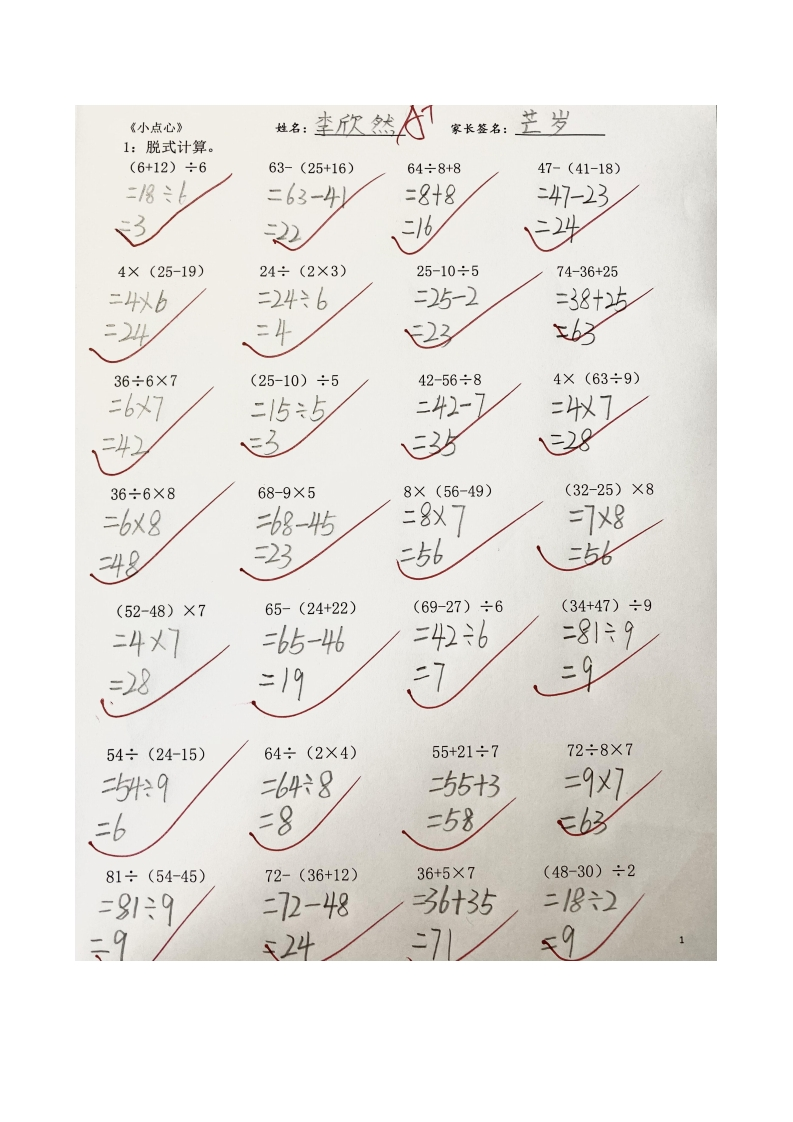 《小点心》 姓名：李欣然 A+ 家长签名：芒岁
1：脱式计算。
（6+12）÷6 63-（25+16） 64÷8+8 47-（41-18）
=18÷6 =63-41 =8+8 =47-23
=3 =22 =16 =24
4×（25-19） 24÷（2×3） 25-10÷5 74-36+25
=4×6 =24÷6 =25-2 =38+25
=24 =4 =23 =63
36÷6×7 （25-10）÷5 42-56÷8 4×（63÷9）
=6×7 =15÷5 =42-7 =4×7
=42 =3 =35 =28
36÷6×8 68-9×5 8×（56-49） （32-25）×8
=6×8 =68-45 =8×7 =7×8
=48 =23 =56 =56
（52-48）×7 65-（24+22） （69-27）÷6 （34+47）÷9
=4×7 =65-46 =42÷6 =81÷9
=28 =19 =7 =9
54÷（24-15） 64÷（2×4） 55+21÷7 72÷8×7
=54÷9 =64÷8 =55+3 =9×7
=6 =8 =58 =63
81÷（54-45） 72-（36+12） 36+5×7 （48-30）÷2
=81÷9 =72-48 =36+35 =18÷2
=9 =24 =71 =9
1